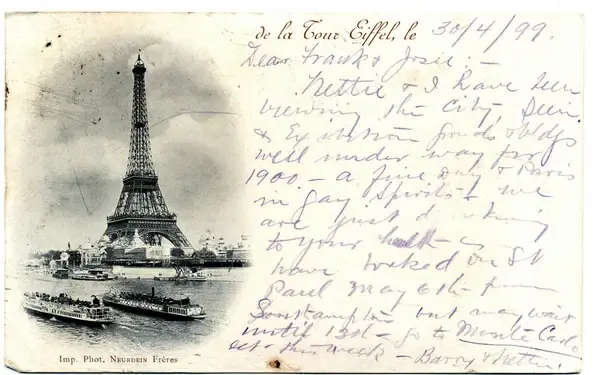 de la Tour Eiffel, le 30/4/99.
Dear Frank & Josie: —
Nettie & I have been
viewing the City, Seine
& Exhibition grounds & bldgs
well under way for
1900 — a fine Day & Paris
in gay spirits & we
are just drinking
to your health —
have booked on St
Paul May 6th from
Southampton but may wait
until 13th — go to Monte Carlo
etc this week — Barry & Nettie.
Imp. Phot. NEURDEIN Frères